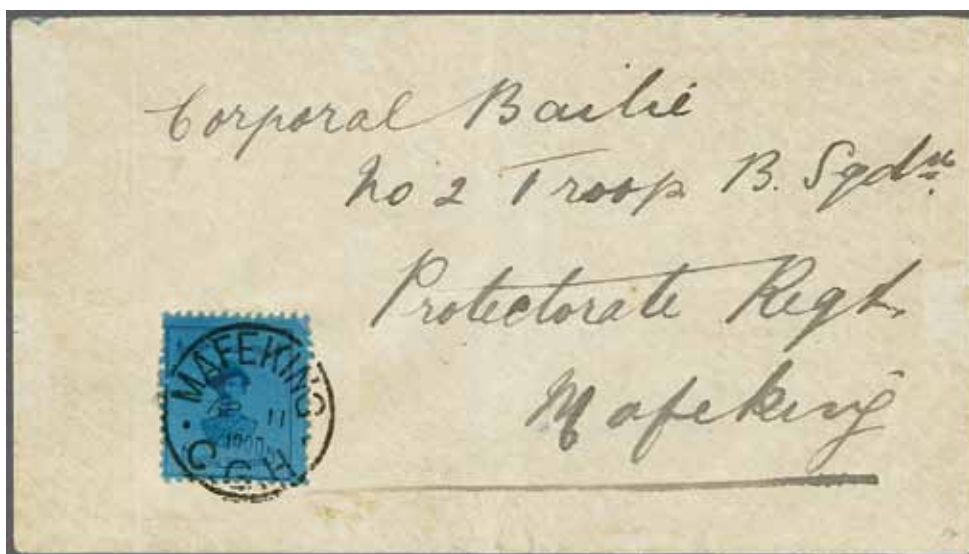 Corporal Bailie
No 2 Troop B. Sqdn.
Protectorate Regt.
Mafeking
MAFEKING
11
1900
C.G.H.